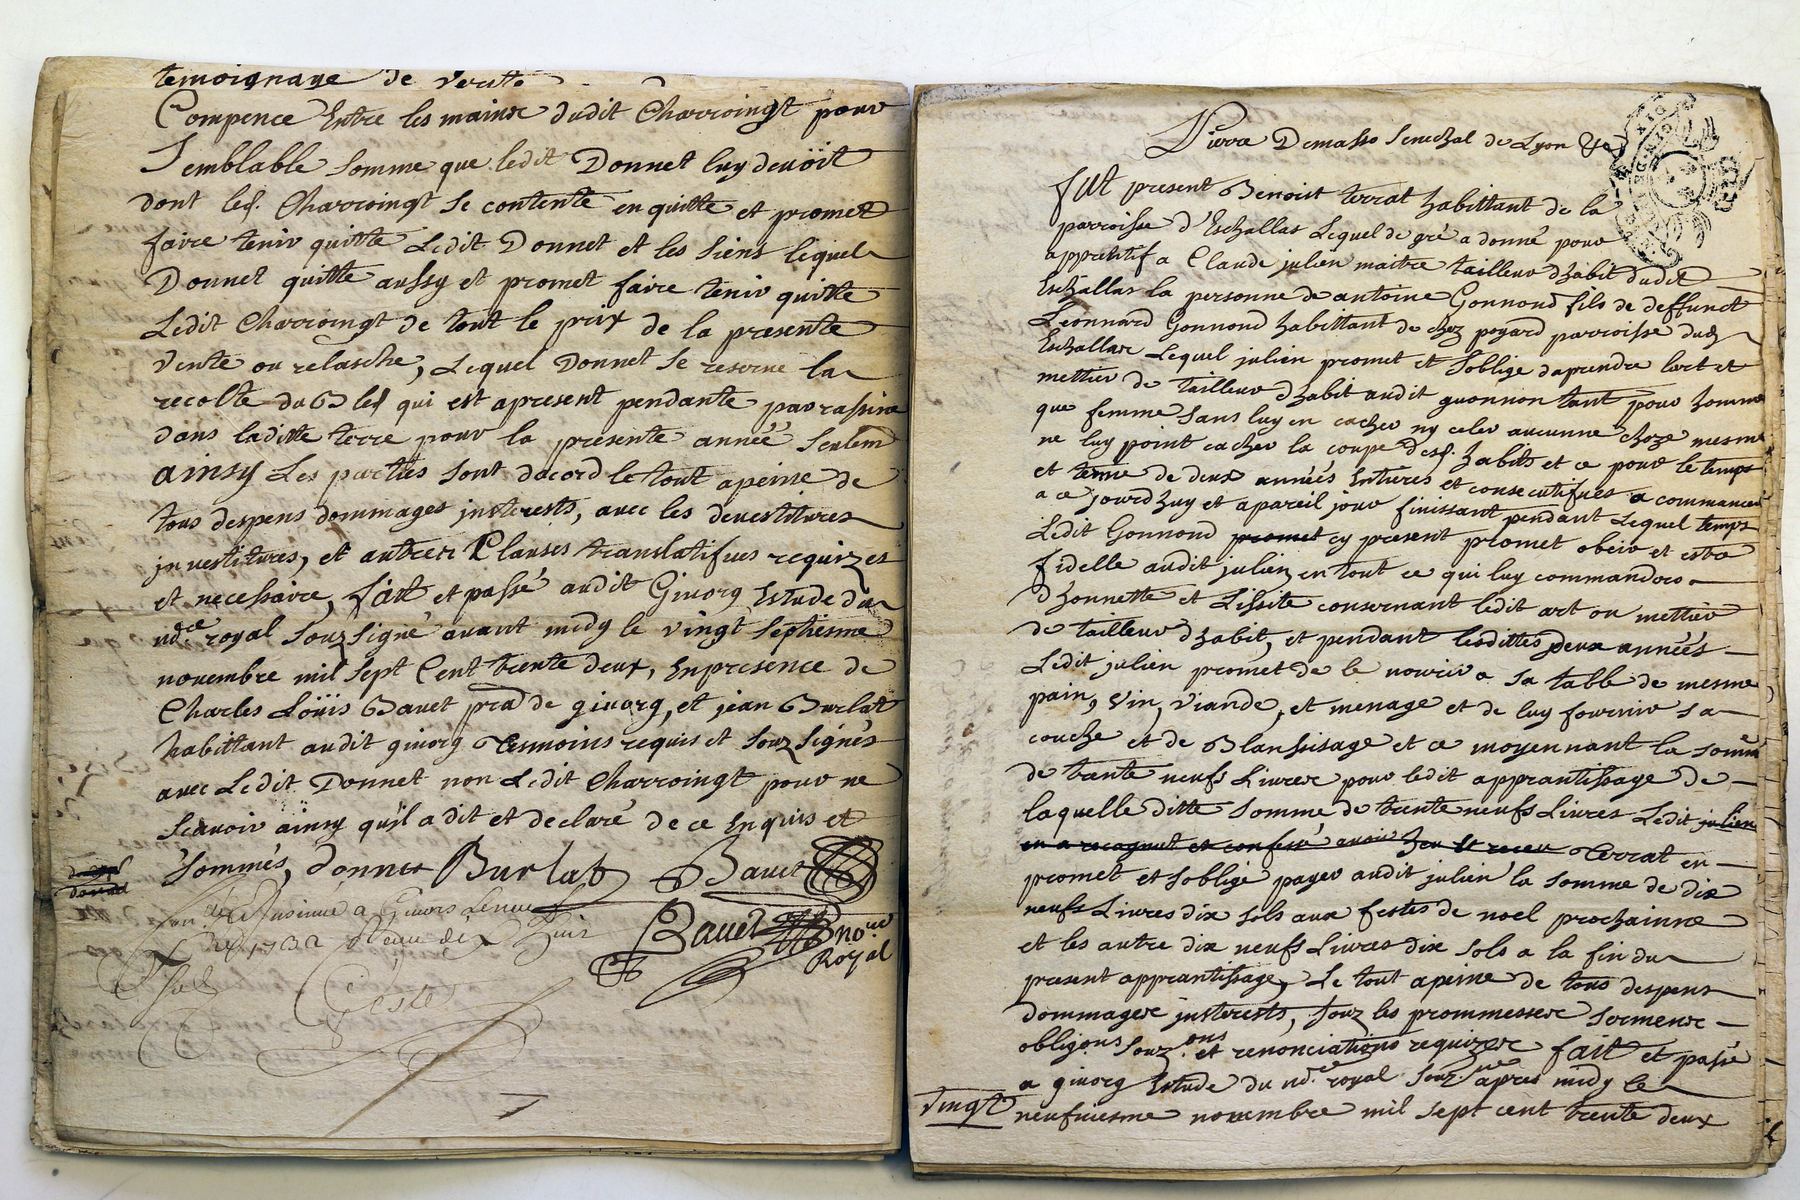 temoignage de verite
Compence Entre les mainse dudit Charroingt pour
Semblable somme que ledit Donnet luy devöit
dont led. Charroingt se contente en quitte et promet
faire tenir quitte Ledit Donnet et les siens lequel
Donnet quitte aussy et promet faire tenir quitte
Ledit Charroingt de tout le prix de la presente
vente ou relasche, Lequel Donnet se reserve la
recolte du Bled qui est apresent pendante par rassine
dans laditte terre pour la presente année seulem
ainsy Les parties sont dacord le tout apeine de
tous despens dommages justerests, avec les devestitures
jnvestitures, et autres Clauses translatifves requizes
et necessaire, fait et passé audit Givorg Estude du
nd.re royal souz signé avant midy le vingt septiesme
novembre mil sept Cent trente deux, En presence de
Charles Löüis Bavet pra de givorg, et jean Burlat
habittant audit givorg tesmoins requis et souz signés
avec Ledit Donnet non Ledit Charroingt pour ne
scavoir ainsy qu'il a dit et declaré de ce Enquis et
sommés, donnet Burlat Bavet
Insinué a Givors Le neuf
1732 Receu dix huit
Bavet no.re
Royal
Pierre Demasso Senechal de Lyon &c
DIX
GEN. DE
fut present Benoist terrat habittant de la
parroisse d'Eschallas Lequel de gré a donné pour
apprentif a Claude julien maitre tailleur dhabit dudit
Eschallas la personne de antoine Gonnond fils de deffunct
Leonnard Gonnond habittant de chez pogard parroisse dud
Eschallas Lequel julien promet et soblige daprendre lart et
mettier de tailleur dhabit audit guonnon tant pour homme
que femme sans luy en cacher ny celer aucunne choze mesme
ne luy point cacher la coupe desd. habits et ce pour le temps
et terme de deux années Entieres et consecutifves a commancer
a ce jourdhuy et apareil jour finissant pendant Lequel temps
Ledit Gonnond promet cy present promet obeir et estre
fidelle audit julien en tout ce qui luy commandera
dhonnette et Lissite consernant ledit art ou mettier
de tailleur dhabit, et pendant lesdittes deux années
Ledit julien promet de le nourir a sa table de mesme
pain, vin, viande, et menage et de luy fournir sa
couche et de Blanhisage et ce moyennant la somme
de trante neufs Livres pour ledit apprantissage de
laquelle ditte somme de trente neufs Livres Ledit julien
en a recognut et confessé avoir heu et receu terrat en
promet et soblige payer audit julien la somme de dix
neufs Livres dix sols aux festes de noel prochainne
et les autre dix neufs Livres dix sols a la fin du
present apprantissage, Le tout apeine de tous despens
dommages justerests, souz les prommesses sermens
obligons souz.ons et renonciations requizes fait et passé
a givorg Estude du nd.re royal souz.né apres midy le
vingt neufviesme novembre mil sept cent trente deux